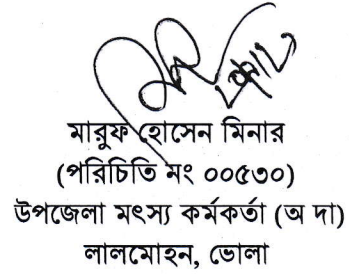 মারুফ হোসেন মিনার
(পরিচিতি মং ০০৫৩০)
উপজেলা মৎস্য কর্মকর্তা (অ দা)
লালমোহন, ভোলা